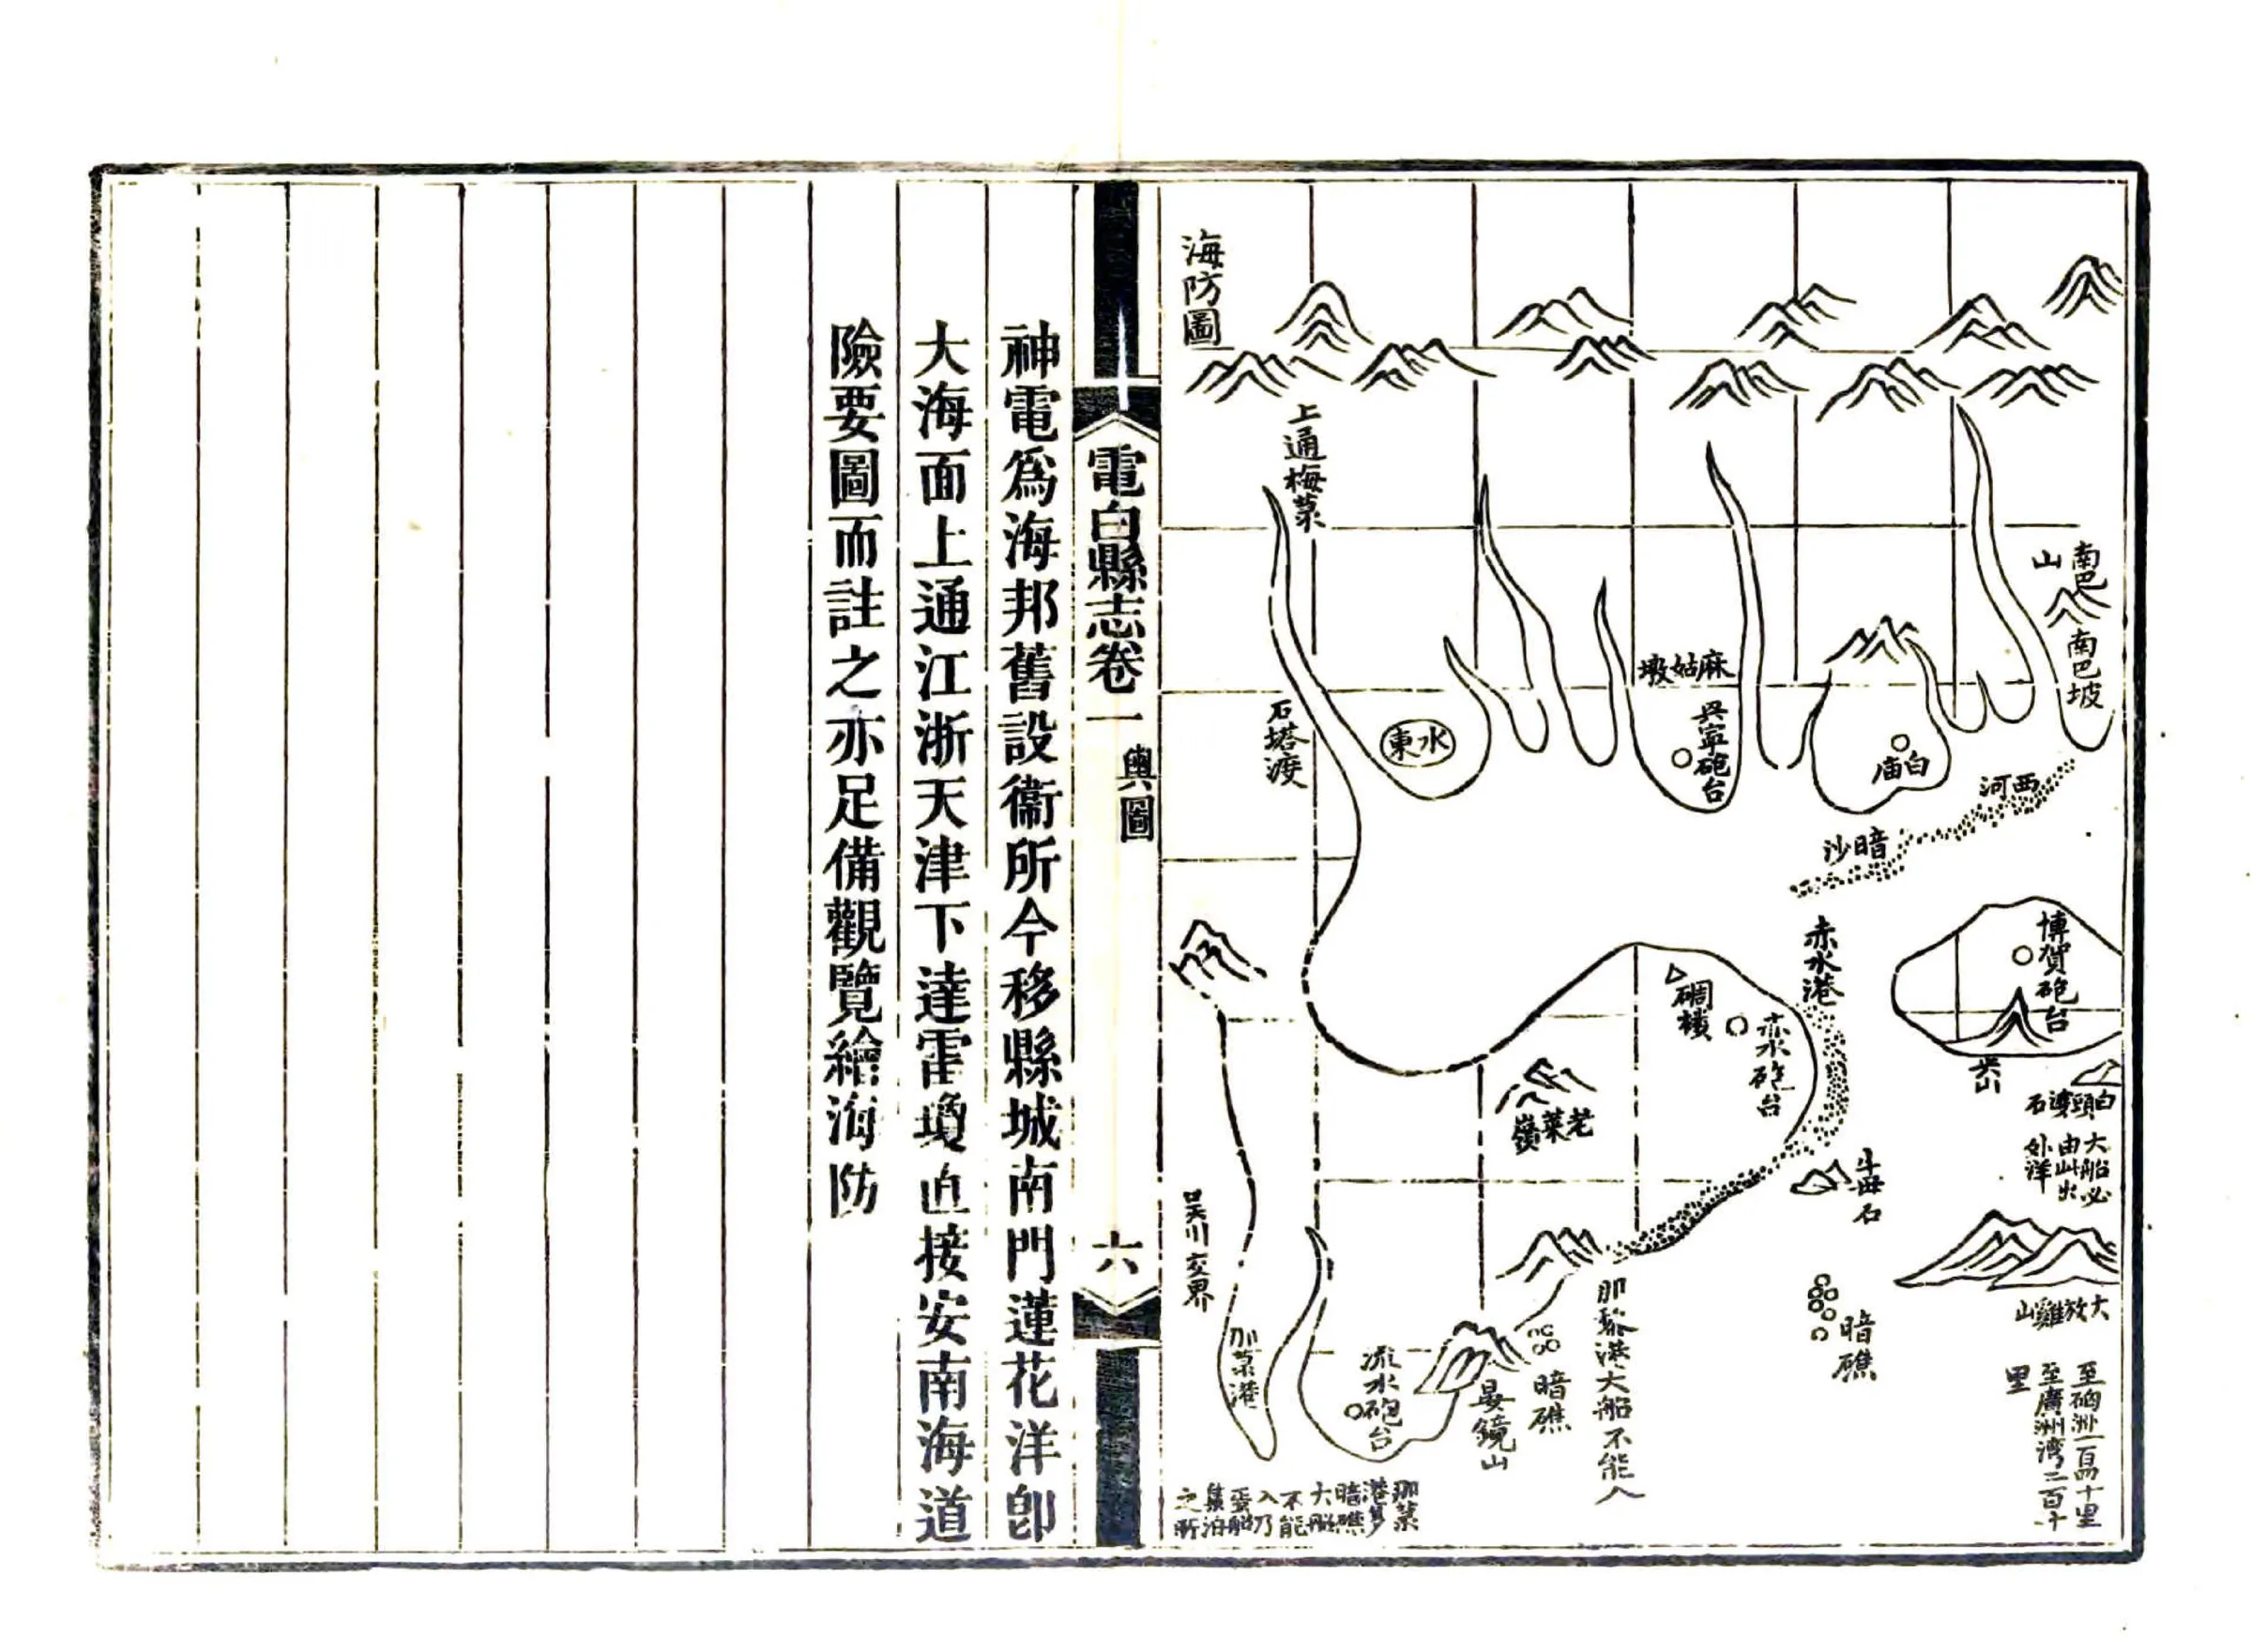 海防圖
南巴
山
南巴坡
上通梅菉
麻姑墩
興寧砲台
白庙
水東
石塔渡
西河
暗沙
赤水港
博賀砲台
碉樓
赤水砲台
老菜嶺
白頭婆石
大船必
由此出
外洋
大放雞山
暗礁
至硇洲一百四十里
至廣洲湾二百十
里
吳川交界
流水砲台
晏鏡山
暗礁
港大船不能入
港多
暗礁
大船
不能
入乃
蛋船
集泊
之所
電白縣志卷一
輿圖
六
神電爲海邦舊設衞所今移縣城南門蓮花洋卽
大海面上通江浙天津下達雷瓊直接安南海道
險要圖而註之亦足備觀覽繪海防